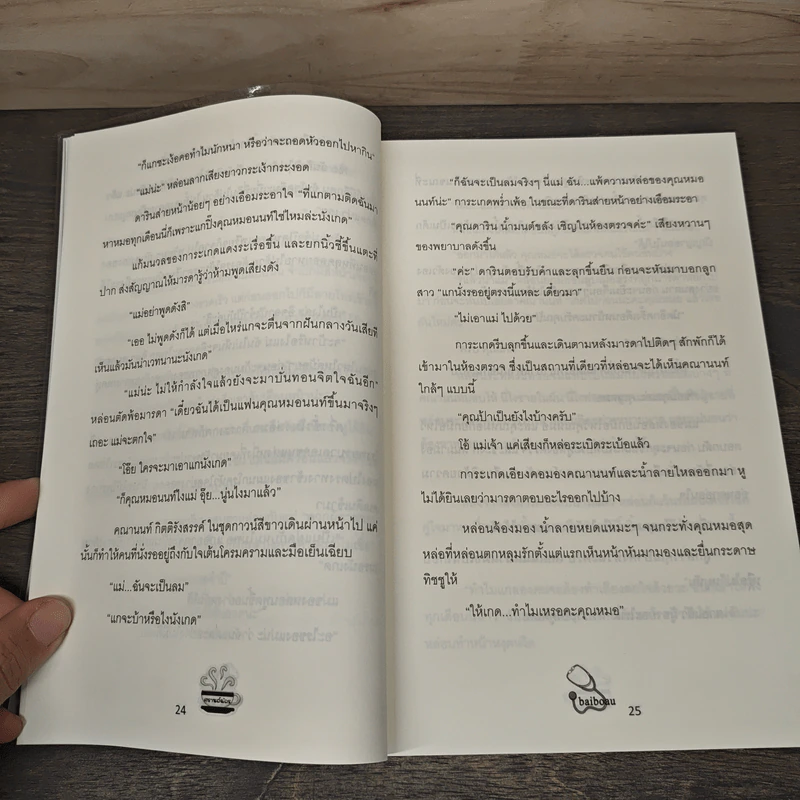 "ก็แกชะเง้อคอทำไมนักหนา หรือว่าจะถอดหัวออกไปหากิน"
"แม่น่ะ" หล่อนลากเสียงยาวกระเง้ากระงอด
ดารินส่ายหน้าน้อยๆ อย่างเอือมระอาใจ "ที่แกตามติดฉันมา
หาหมอทุกเดือนนี่ก็เพราะแกปิ๊งคุณหมอนนท์ใช่ไหมล่ะนังเกด"
แก้มนวลของการะเกดแดงระเรื่อขึ้น และยกนิ้วชี้ขึ้นแตะที่
ปาก ส่งสัญญาณให้มารดารู้ว่าห้ามพูดเสียงดัง
"แม่อย่าพูดดังสิ"
"เออ ไม่พูดดังก็ได้ แต่เมื่อไหร่แกจะตื่นจากฝันกลางวันเสียที
เห็นแล้วมันน่าเวทนานะนังเกด"
"แม่น่ะ ไม่ให้กำลังใจแล้วยังจะมาบั่นทอนจิตใจฉันอีก"
หล่อนตัดพ้อมารดา "เดี๋ยวฉันได้เป็นแฟนคุณหมอนนท์ขึ้นมาจริงๆ
เถอะ แม่จะตกใจ"
"โอ๊ย ใครจะมาเอาแกนังเกด"
"ก็คุณหมอนนท์ไงแม่ อุ๊ย...นู่นไงมาแล้ว"
คณานนท์ กิตติรังสรรค์ ในชุดกาวน์สีขาวเดินผ่านหน้าไป แค่
นั้นก็ทำให้คนที่นั่งรออยู่ถึงกับใจเต้นโครมครามและมือเย็นเฉียบ
"แม่...ฉันจะเป็นลม"
"แกจะบ้าหรือไงนังเกด"
24
"ก็ฉันจะเป็นลมจริงๆ นี่แม่ ฉัน...แพ้ความหล่อของคุณหมอ
นนท์น่ะ" การะเกดพร่ำเพ้อ ในขณะที่ดารินส่ายหน้าอย่างเอือมระอา
"คุณดาริน น้ำมนต์ขลัง เชิญในห้องตรวจค่ะ" เสียงหวานๆ
ของพยาบาลดังขึ้น
"ค่ะ" ดารินตอบรับคำและลุกขึ้นยืน ก่อนจะหันมาบอกลูก
สาว "แกนั่งรออยู่ตรงนี้แหละ เดี๋ยวมา"
"ไม่เอาแม่ ไปด้วย"
การะเกดรีบลุกขึ้นและเดินตามหลังมารดาไปติดๆ สักพักก็ได้
เข้ามาในห้องตรวจ ซึ่งเป็นสถานที่เดียวที่หล่อนจะได้เห็นคณานนท์
ใกล้ๆ แบบนี้
"คุณป้าเป็นยังไงบ้างครับ"
โอ้ แม่เจ้า แค่เสียงก็หล่อระเบิดระเบ้อแล้ว
การะเกดเอียงคอมองคณานนท์และน้ำลายไหลออกมา หู
ไม่ได้ยินเลยว่ามารดาตอบอะไรออกไปบ้าง
หล่อนจ้องมอง น้ำลายหยดแหมะๆ จนกระทั่งคุณหมอสุด
หล่อที่หล่อนตกหลุมรักตั้งแต่แรกเห็นหน้าหันมามองและยื่นกระดาษ
ทิชชูให้
"ให้เกด...ทำไมเหรอคะคุณหมอ"
baiboau
25